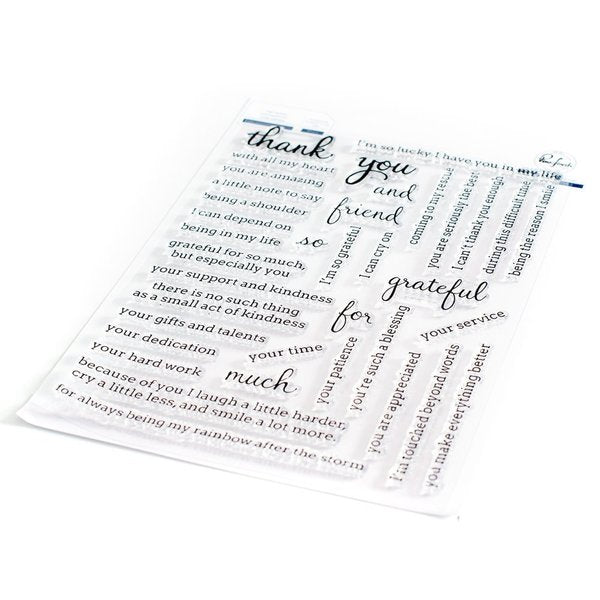 thank
I'm so lucky I have you in my life
with all my heart
you
you are amazing
and
a little note to say
friend
being a shoulder
I can depend on
so
being in my life
grateful for so much,
but especially you
your support and kindness
there is no such thing
as a small act of kindness
your gifts and talents
your dedication
your time
your hard work
much
because of you I laugh a little harder,
cry a little less, and smile a lot more.
for always being my rainbow after the storm
I'm so grateful
I can cry on
coming to my rescue
you are seriously the best
I can't thank you enough
during this difficult time
being the reason I smile
grateful
for
your service
your patience
you're such a blessing
you are appreciated
I'm touched beyond words
you make everything better